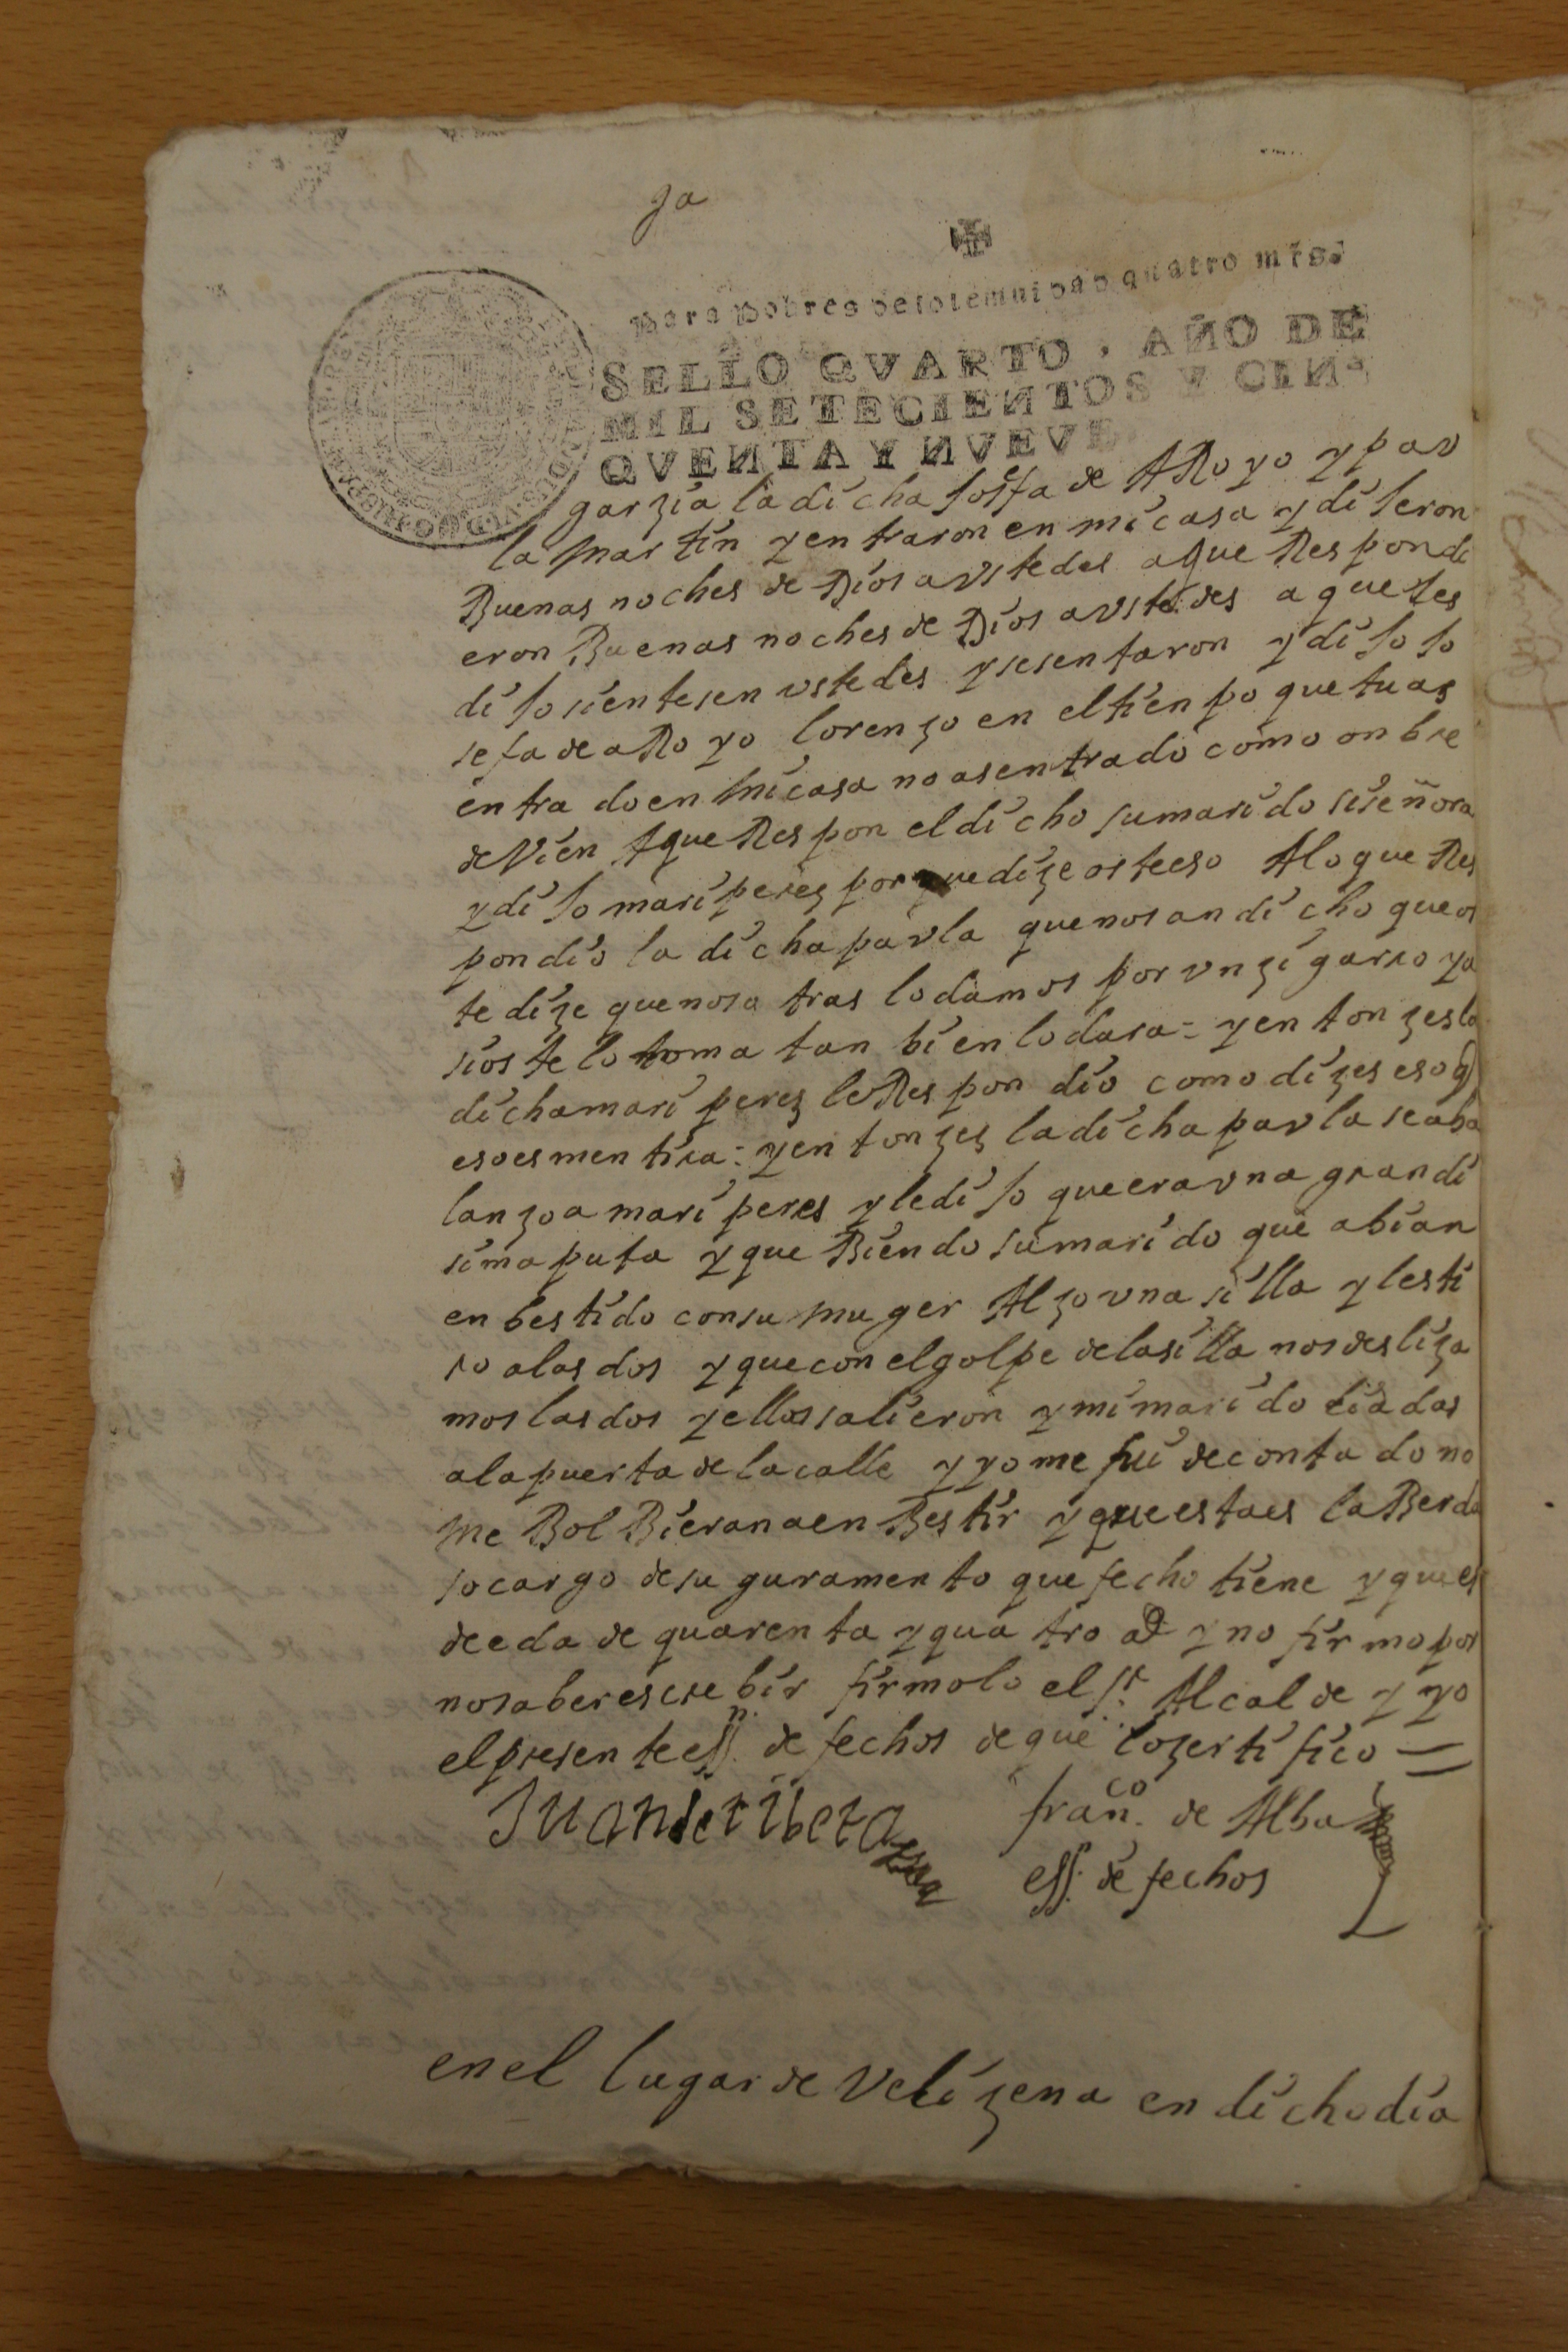 ja
para pobres de solemnidad quatro mrs.
SELLO QVARTO, AÑO DE
MIL SETECIENTOS Y CIN-
QVENTA Y NVEVE
garzia la dicha josefa de ARoyo y pav
la martin y entraron en mi casa y dijeron
Buenas noches de Dios avstedes a que Respondi
eron Buenas noches de Dios avstedes a que les
dijo sientesen vstedes y se sentaron y dijo jo
sefa de aRoyo lorenzo en el tienpo que tu as
entrado en mi casa no as entrado como onbre
de Vien A que Respon el dicho su marido si señora
y dijo mari perez por que dize oste eso A lo que Res
pondio la dicha pavla que nos an dicho que os
te dize que nosotras lo damos por vn zigarro ya
si oste lo toma tan bien lo dara = y entonzes la
dicha mari perez le Respondio como dizes eso q
eso es mentira = y entonzes la dicha pavla se aba
lanzo a mari peres y le dijo que era vna grandi
sima puta y que Biendo su marido que abian
enbestido con su muger Alzo vna silla y les ti
ro a las dos y que con el golpe de la silla nos desliza
mos las dos y ellos salieron y mi marido liadas
a la puerta de la calle y yo me fui de contado no
me BolBieran a enBestir y que esta es la Berda
so cargo de su guramento que fecho tiene y que es
de eda de quarenta y quatro as y no firmo por
no saber escrebir firmolo el sr. Alcalde y yo
el presente essn. de fechos de que lo zertifico =
Juan de ribera
franco. de Alba
essn. de fechos
en el lugar de Velizena en dicho dia